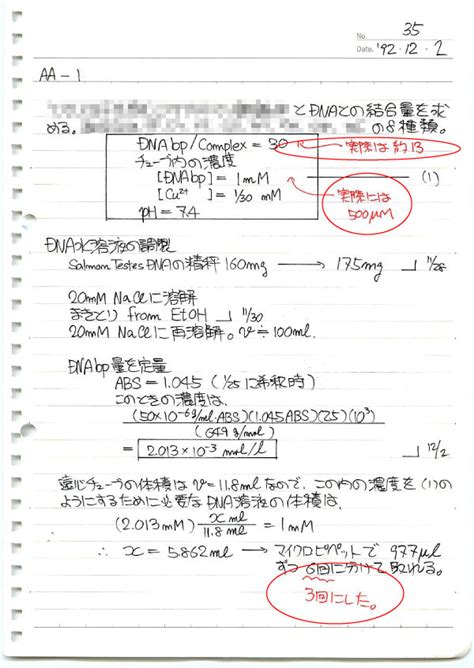 No. 35
Date. '92・12・2
AA-1
とDNAとの結合量を求
める。の8種類。
DNAbp/Complex = 30
実際は約13
チューブ内の濃度
[DNAbp] = 1mM (1)
[Cu2+] = 1/30 mM
実際には
500μM
pH = 7.4
DNA水溶液の調製
Salmon Testes DNAの精秤 160mg → 175mg 11/28
20mM NaClに溶解
まきとり from EtOH 11/30
20mM NaClに再溶解。v≒100ml.
DNAbp量を定量
ABS = 1.045 (1/25に希釈時)
このときの濃度は、
(50×10-6g/ml・ABS)(1.045ABS)(25)(10³)
(649 g/mol)
= 2.013×10-3 mol/l 12/2
遠心チューブの体積は v=11.8mlなので、この内の濃度を(1)の
ようにするために必要なDNA溶液の体積は、
(2.013mM) x ml / 11.8 ml = 1mM
∴ x = 5.862ml → マイクロピペットで 977μl
ずつ6回に分けて取れる。
3回にした。